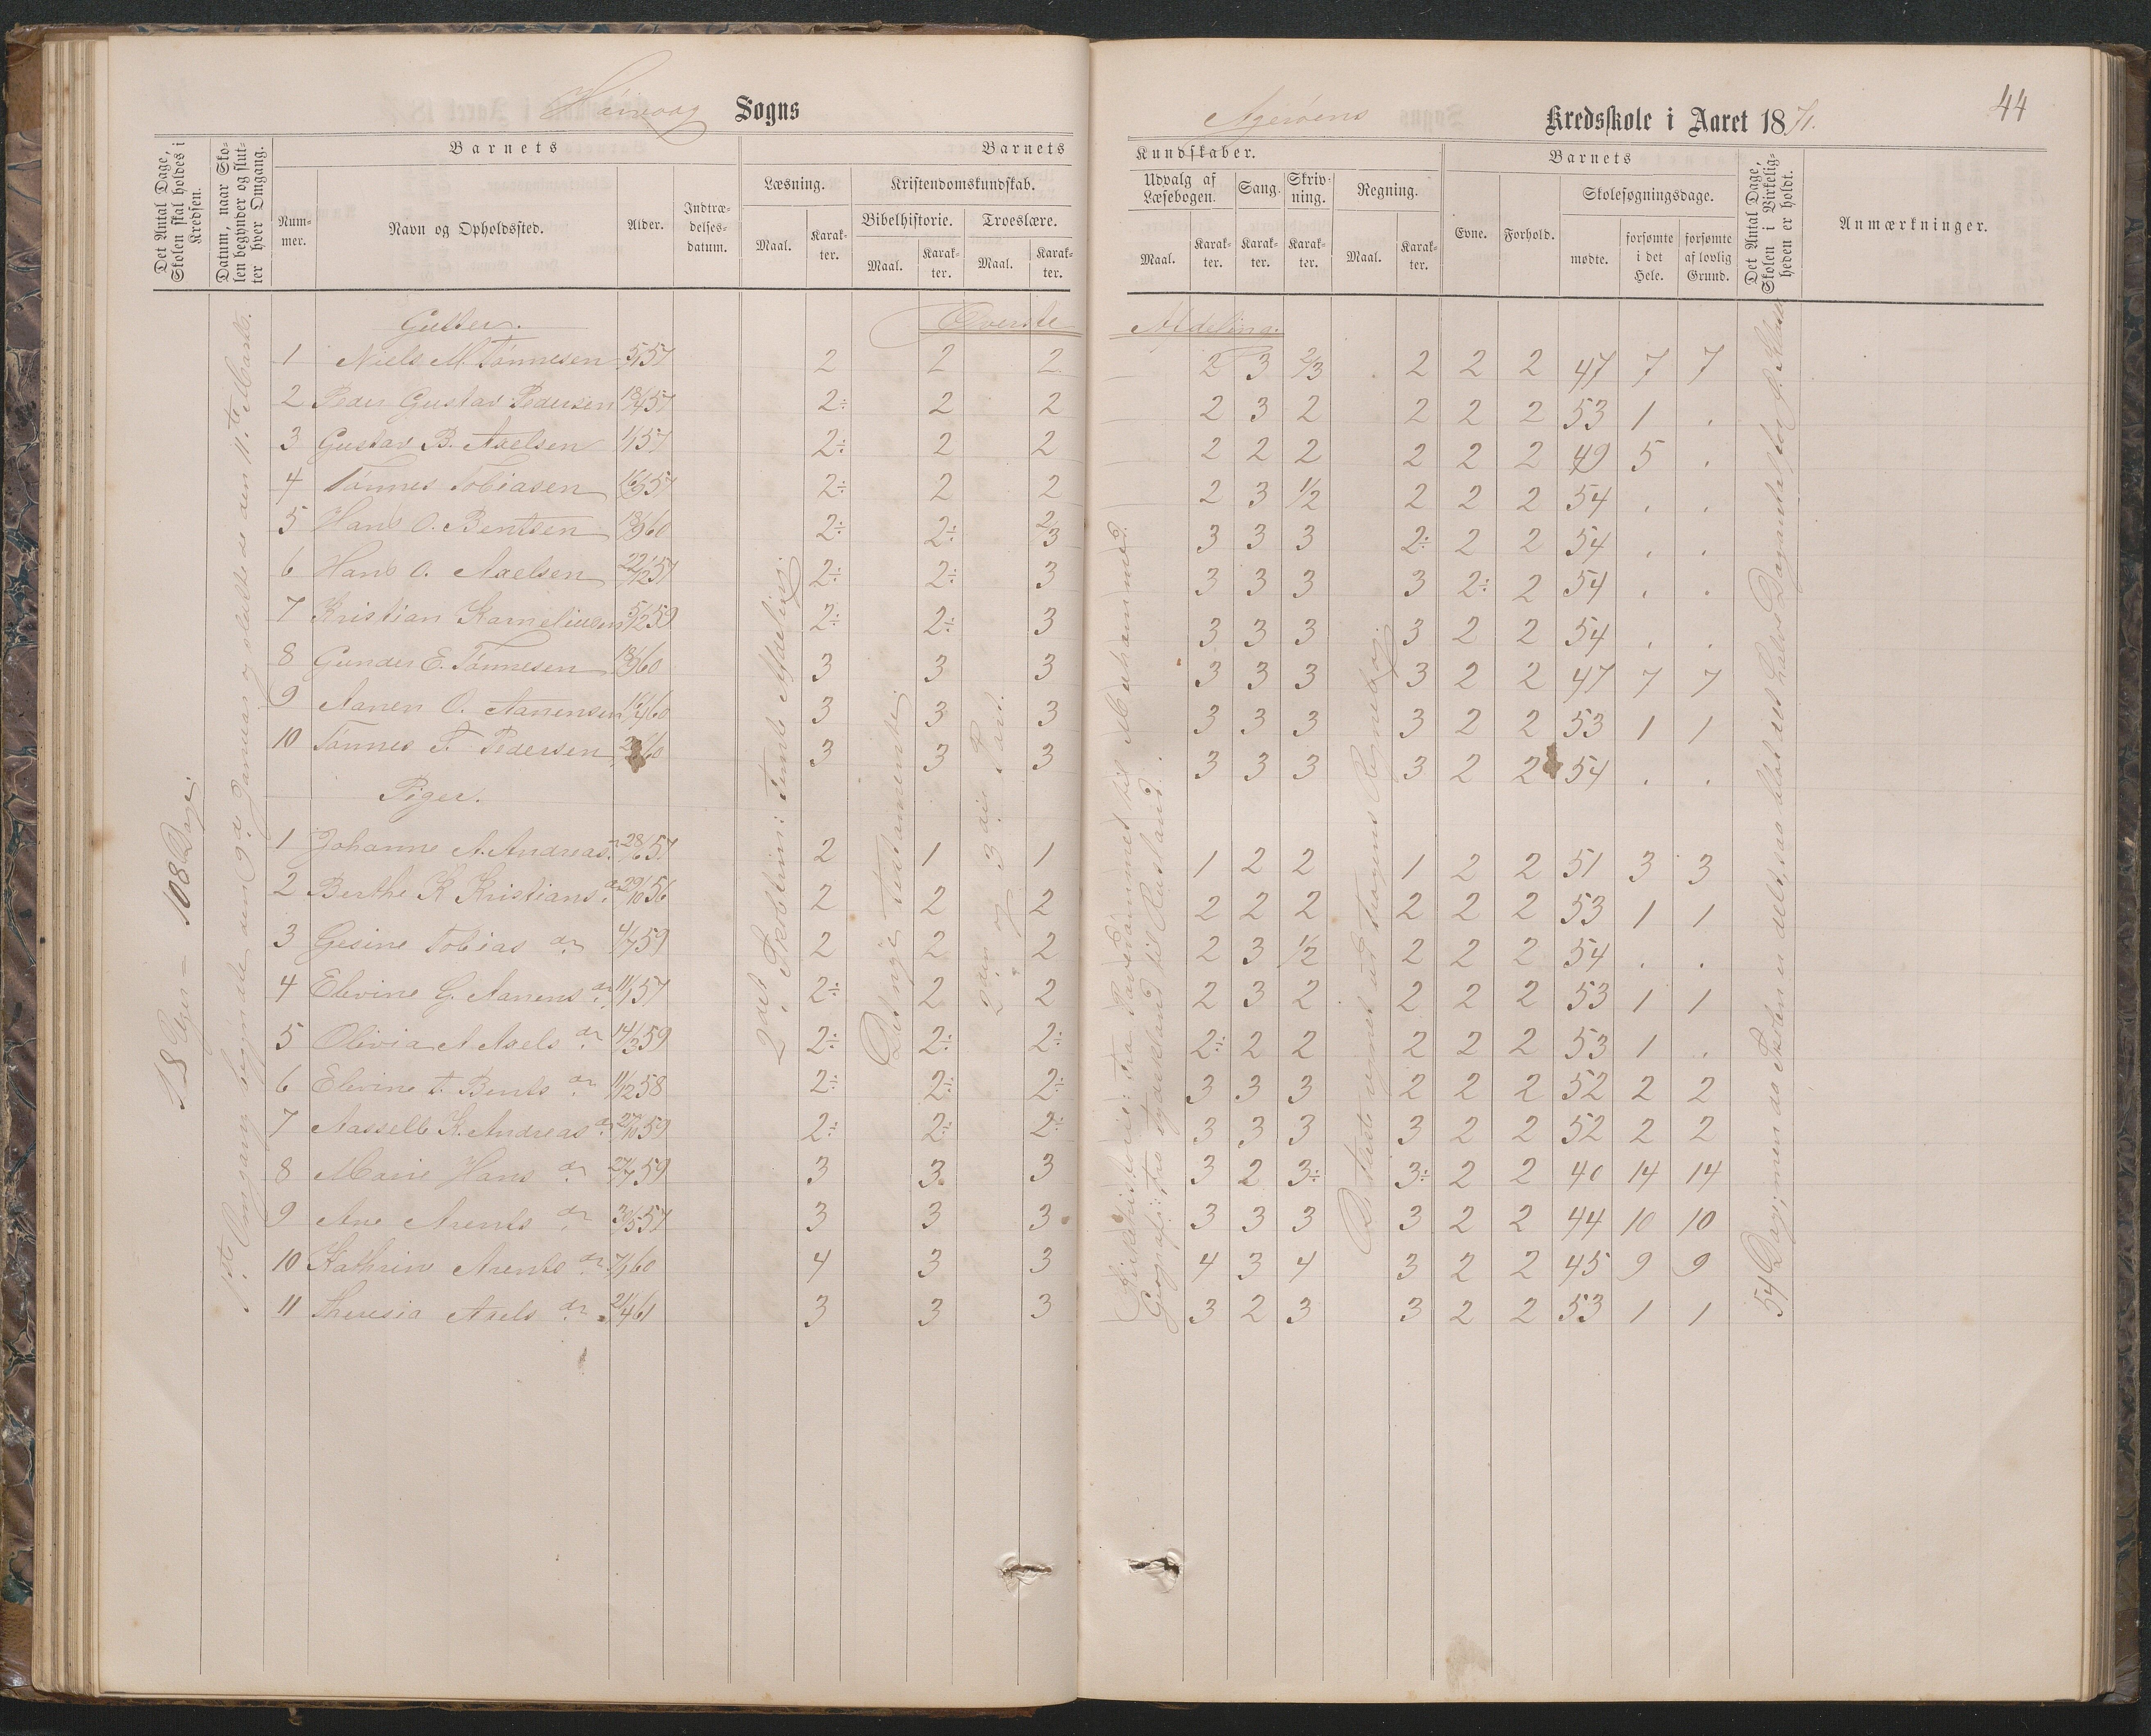 Høivaag Sogns
Agerøens Kredsskole i Aaret 1871.
44
Det Antal Dage, Skolen skal holdes i Kredsen.
Datum, naar Skolen begynder og slutter hver Omgang.
Barnets
Barnets
Kundskaber.
Barnets
Det Antal Dage, Skolen i Virkeligheden er holdt.
Anmærkninger.
Nummer.
Navn og Opholdssted.
Alder.
Indtrædelsesdatum.
Læsning.
Kristendomskundskab.
Udvalg af Læsebogen.
Sang.
Skrivning.
Regning.
Evne.
Forhold.
Skolesøgningsdage.
Bibelhistorie.
Troeslære.
Maal. Karakter. Maal. Karakter. Maal. Karakter.
Maal. Karakter. Karakter. Karakter. Maal. Karakter.
mødte. forsømte i det Hele. forsømte af lovlig Grund.
Gutter. Øverste Afdeling.
1 Niels M. Tønnesen 5/1 57 2 2 2 2 3 2/3 2 2 2 47 7 7
2 Peder Gustav Pedersen 18/4 57 2÷ 2 2 2 3 2 2 2 2 53 1 .
3 Gustav B. Axelsen 57 2÷ 2 2 2 2 2 2 2 2 49 5 .
4 Tønnes Tobiasen 57 2÷ 2 2 2 3 1/2 2 2 2 54 . .
5 Hans O. Bentsen 60 2÷ 2÷ 2/3 3 3 3 2÷ 2 2 54 . .
6 Hans O. Axelsen 22/12 57 2÷ 2÷ 3 3 3 3 3 2÷ 2 54 . .
7 Kristian Karneliusen 5/12 59 2÷ 2÷ 3 3 3 3 3 2 2 54 . .
8 Gunder E. Tønnesen 60 3 3 3 3 3 3 3 2 2 47 7 7
9 Aanen O. Aanensen 60 3 3 3 3 3 3 3 2 2 53 1 1
10 Tønnes T. Pedersen 60 3 3 3 3 3 3 3 2 2 54 . .
Piger.
1 Johanne A. Andreas dn 28/6 57 2 1 1 1 2 2 1 2 2 51 3 3
2 Berthe K Kristians dn 29/10 56 2 2 2 2 2 2 2 2 2 53 1 1
3 Gesine Tobias dn 4/7 59 2 2 2 2 3 1/2 2 2 2 54 . .
4 Elevine G. Aanens dn 11/1 57 2÷ 2 2 2 3 2 2 2 2 53 1 1
5 Olivia A Axels dn 14/3 59 2÷ 2÷ 2÷ 2÷ 2 2 2 2 2 53 1 .
6 Elevine T. Bents dn 11/12 58 2÷ 2÷ 2÷ 3 3 3 2 2 2 52 2 2
7 Aasselle K. Andreas dn 27/10 59 2÷ 2÷ 2÷ 3 3 3 3 2 2 52 2 2
8 Marie Hans dn 27/7 59 3 3 3 3 2 3÷ 3÷ 2 2 40 14 14
9 Ane Arents dn 30/5 57 3 3 3 3 3 3 3 2 2 44 10 10
10 Kathrine Arents dn 7/1 60 4 3 3 4 3 4 3 2 2 45 9 9
11 Theresia Axels dn 21/4 61 3 3 3 3 2 3 3 2 2 53 1 1
18 Uger = 108 Dage.
1ste Omgang begyndte den 9de Januar og sluttede den 11te Marts.
2den og 3die Part.
Det nye Testamente.
54 Dage; men da Skolen er delt,